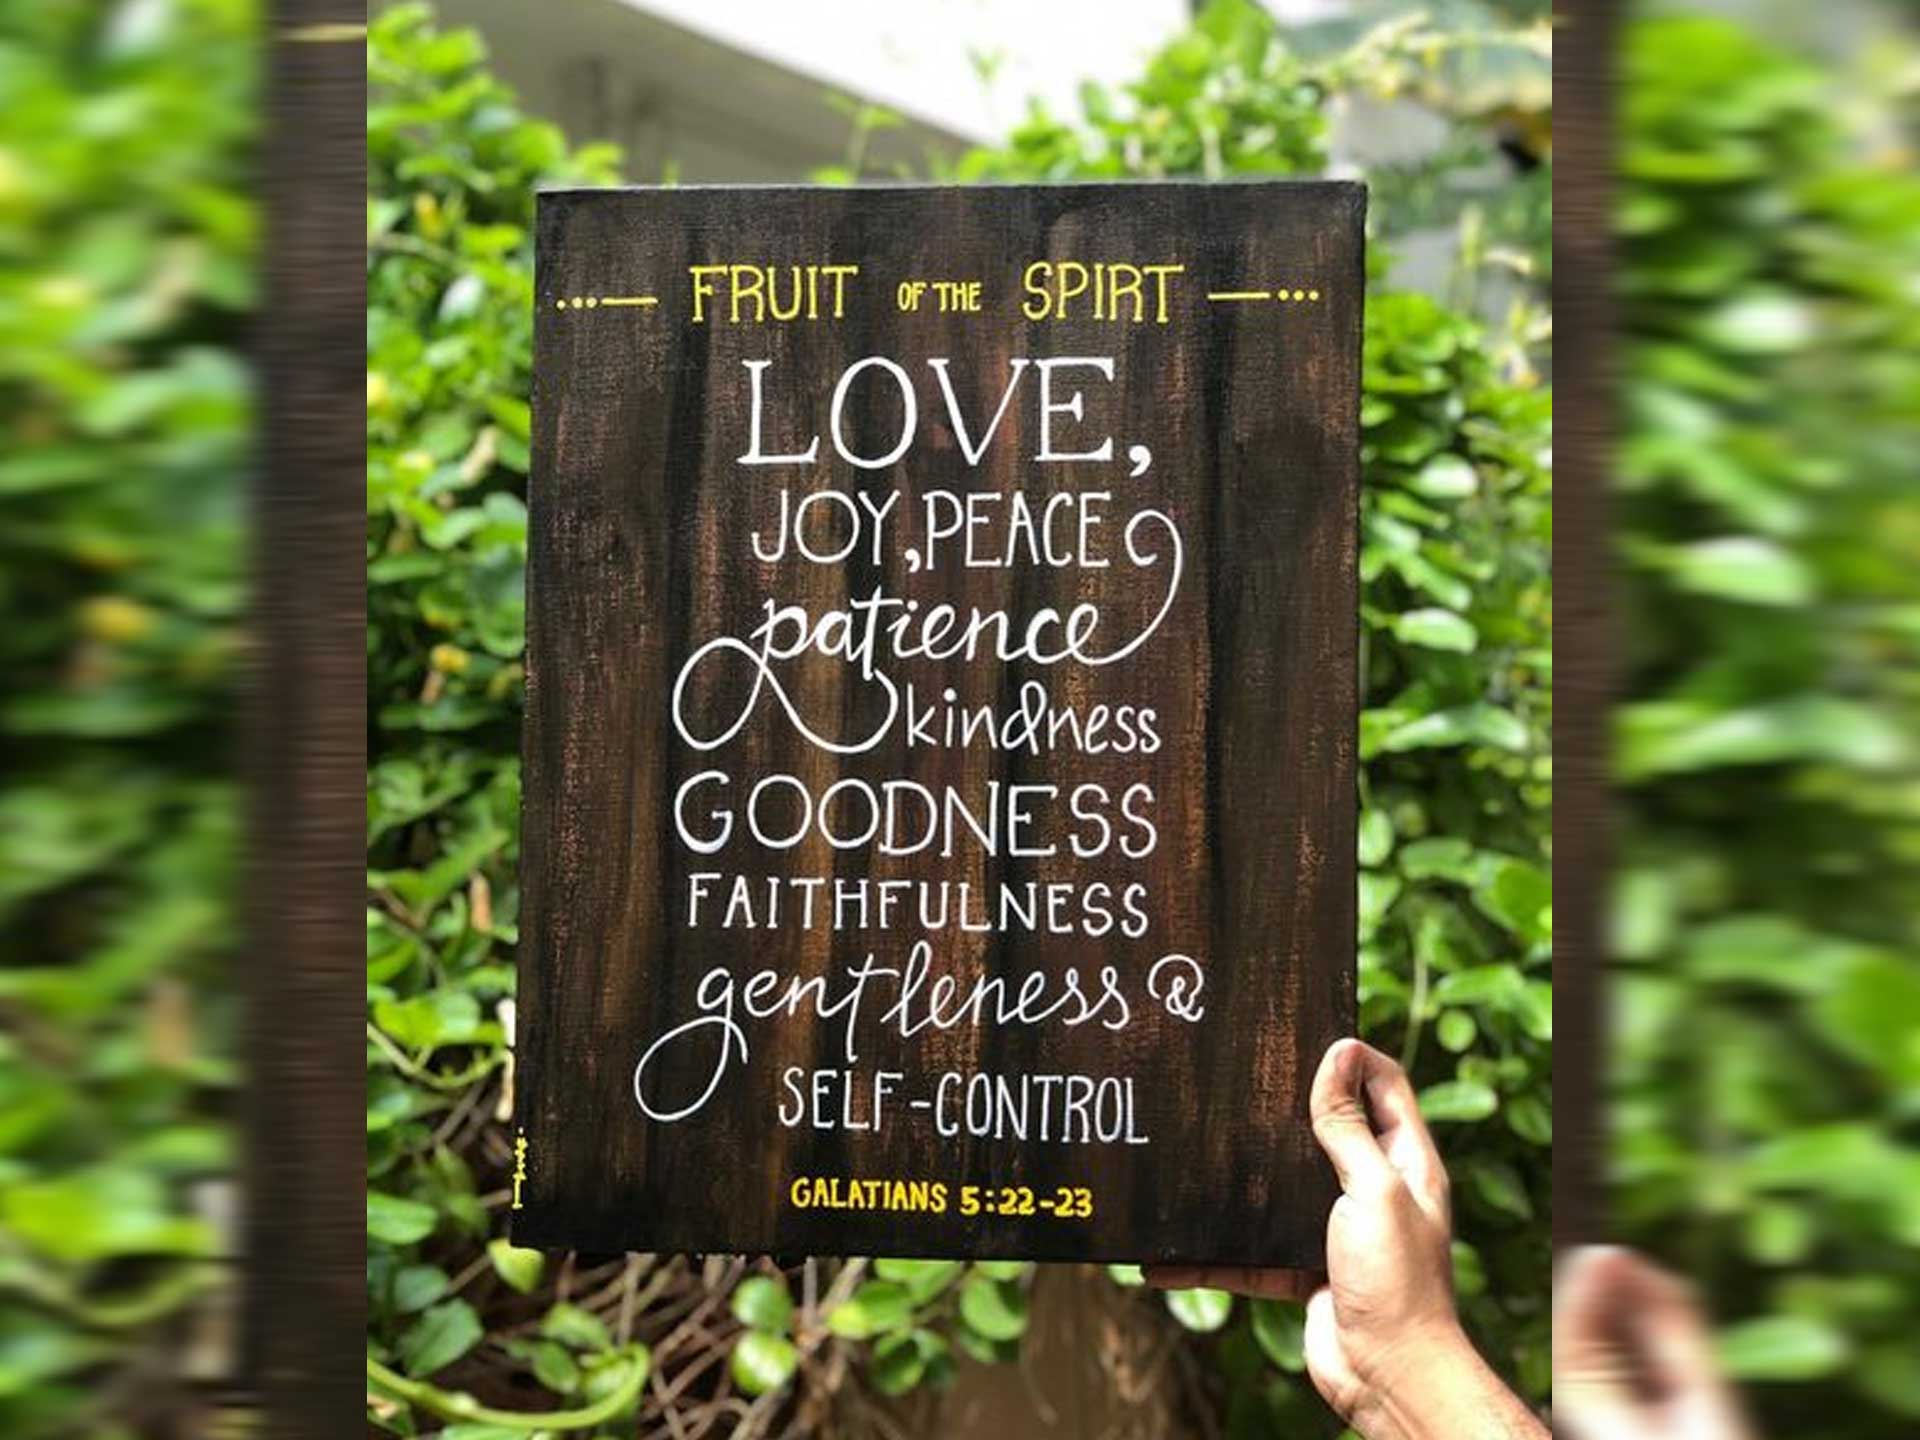 FRUIT OF THE SPIRT
LOVE,
JOY, PEACE
patience
kindness
GOODNESS
FAITHFULNESS
gentleness &
SELF-CONTROL
GALATIANS 5:22-23